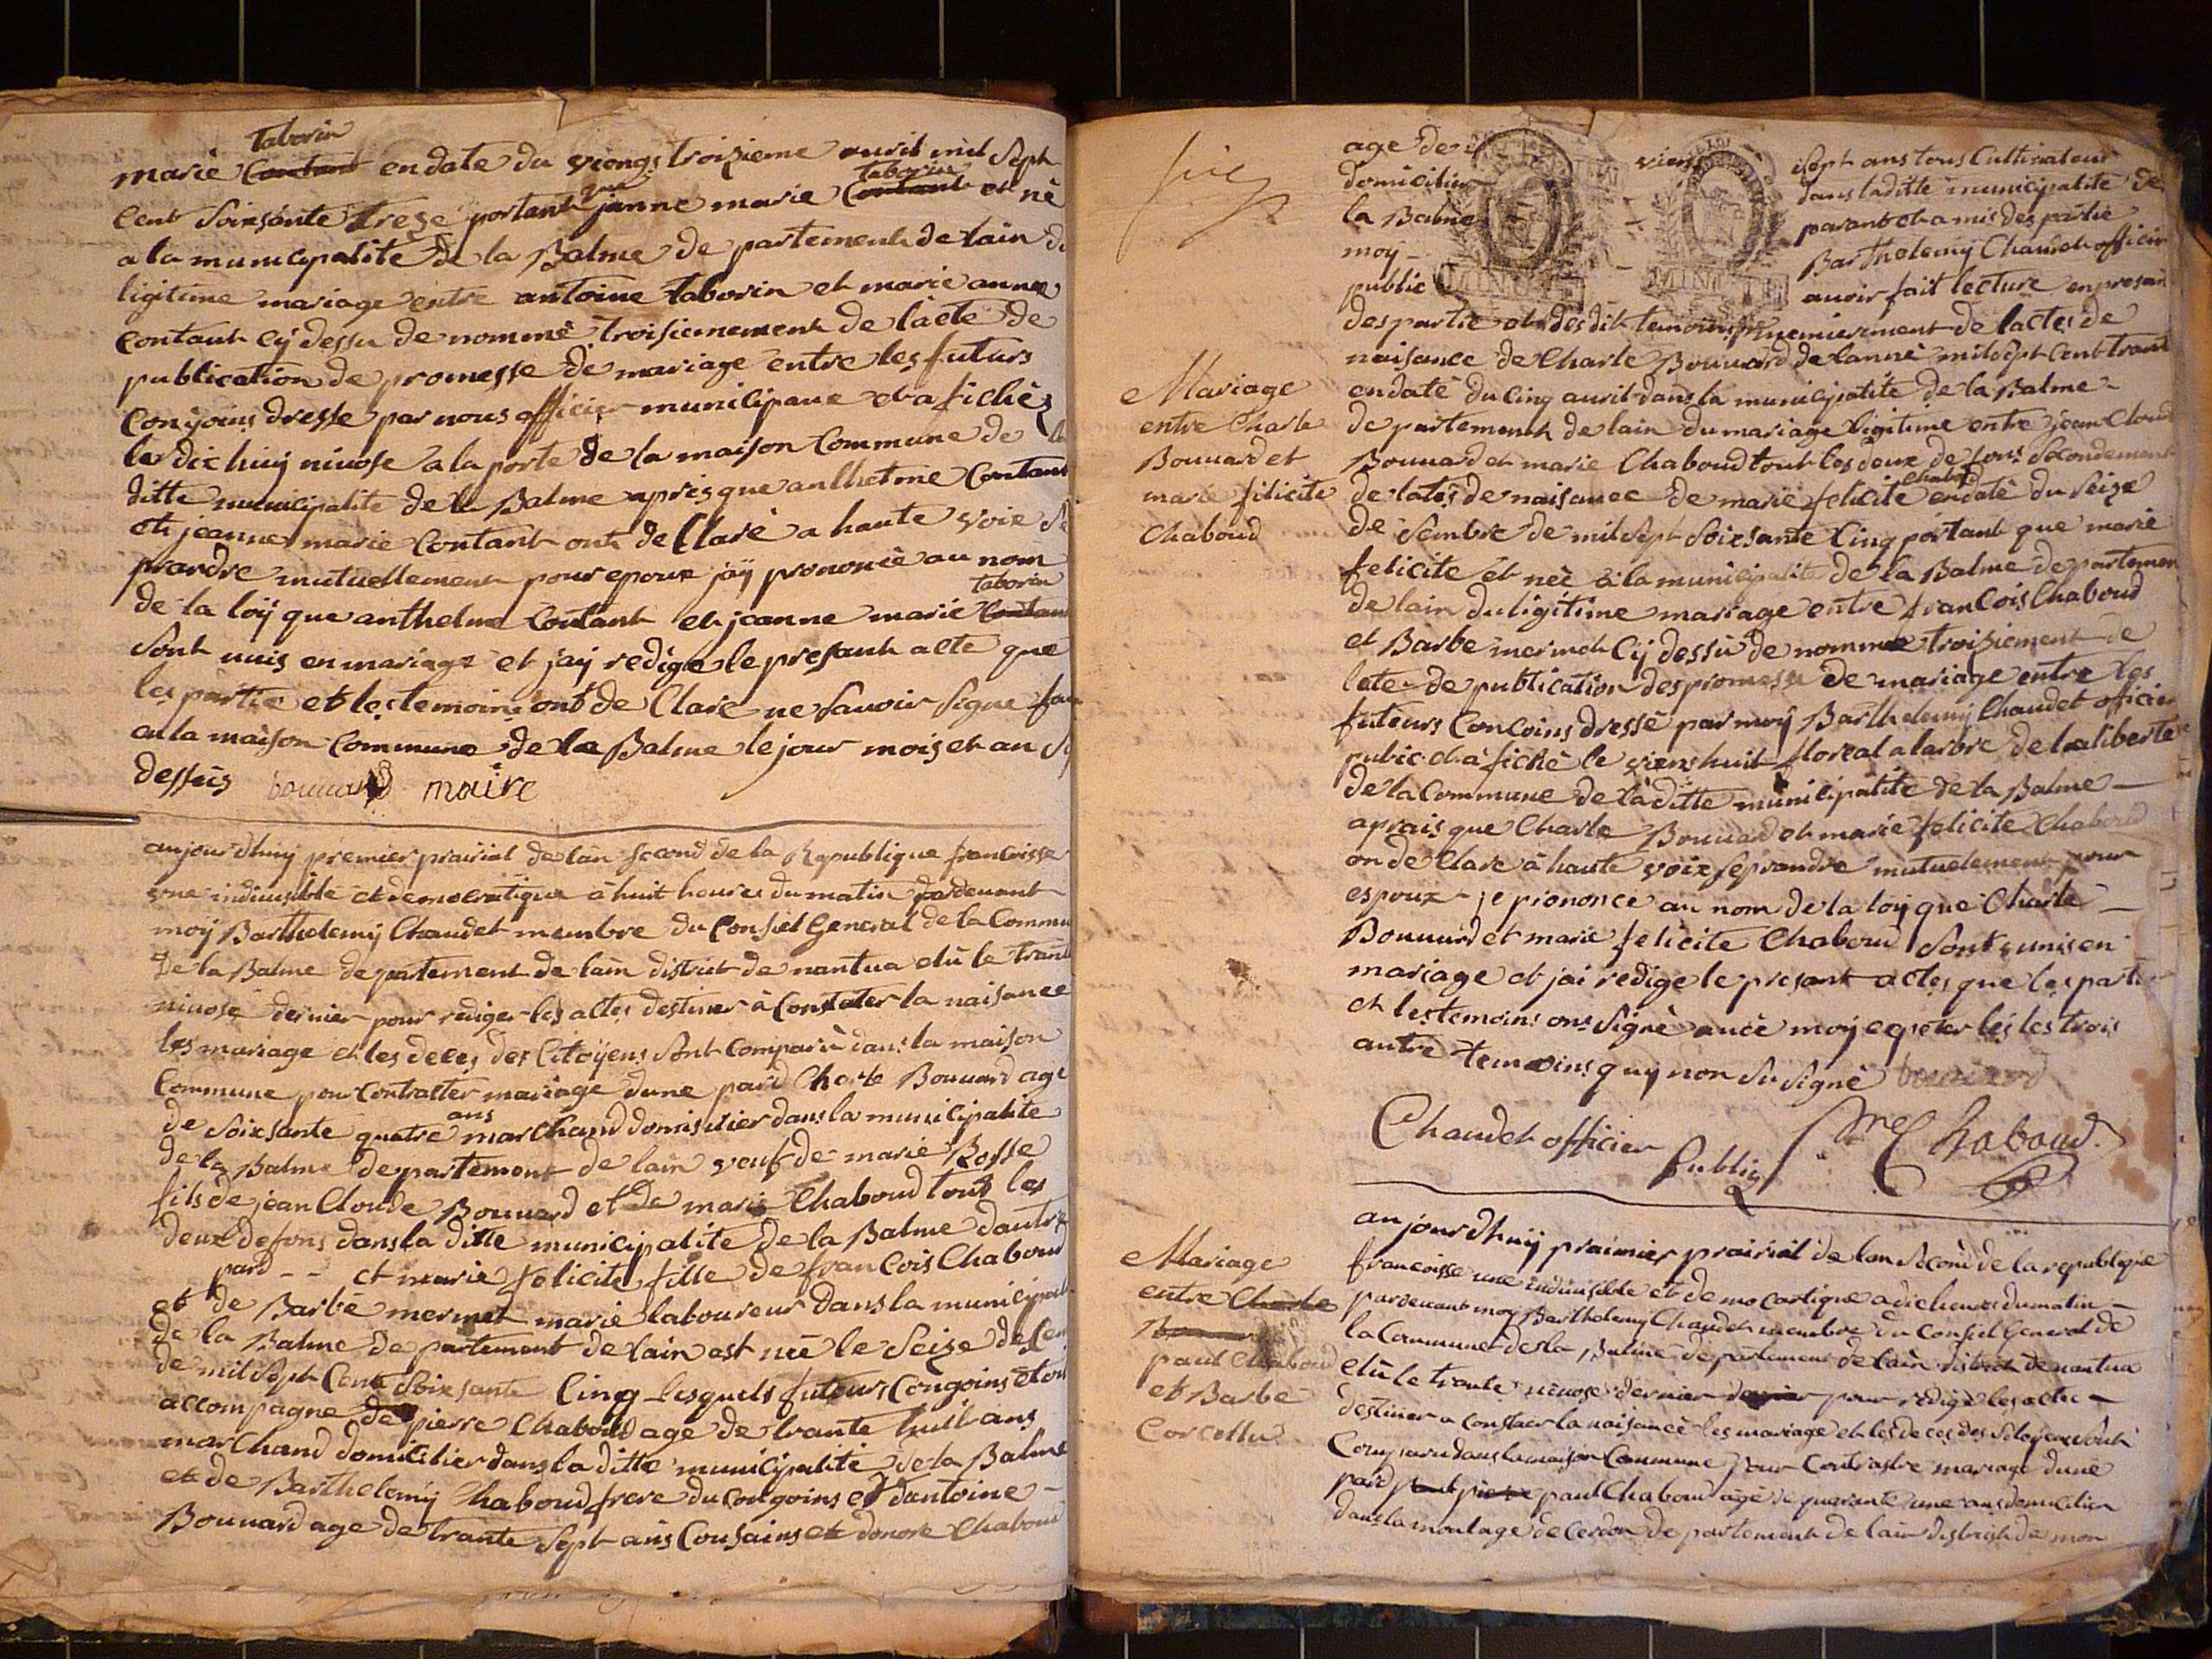 taborin
marie Contant en date du viengt troizieme auril mil Sept
Cent Soixsante treze portant que janne marie Contant taborin et né
a la municipalite de la Balme de partement de lain du
ligitime mariage entre antoine taborin et marie anne
Contant cy dessu de nommé troisiemement de lacte de
publication de promesse de mariage entre les futurs
Conjoins dresse par nous officier municipaux et afichés
le dix huij niuose a la porte de la maison Commune de la
ditte municipalite de la Balme apris que anthelme Contant
et jeanne marie Contant ont de Claré a haute voix Se
prandre mutuellement pour epoux jaÿ prononcé au nom
de la loÿ que anthelme Contant et jeanne marie Contant taborin
Sont unis en mariage et jaÿ redige le presant acte que
les partie et les temoins ont de Clare ne Sauoir Signe fait
en la maison Commune de la Balme le jour mois et an Sy
dessus bouuard maire
aujourdhuy premier prairial de lan Second de la Republique francoisse
vne indiuisible et democratique a huit heures du matin pardeuant
moÿ Barthelemÿ Chaudet membre du Conseil General de la Commu
De la Balme departement de lain district de nantua elu le trant
niuose dernier pour rediger les actes destiner à Constater la naisance
les mariage et les deces des Citoÿens Sont Comparu dans la maison
Commune pour Contracter mariage dune pard Charle Bouuard age
de Soixsante quatre ans marChand domisilier dans la municipalite
de la Balme departement de lain veuf de marie Rosse
fils de jean Cloude Bouuard et de marie Chaboud tous les
deux defons dans la ditte municipalite de la Balme dautre
pard - - et marie felicite fille de franCois Chaboud
et de Barbe mermet marie laboureur dans la municipal
de la Balme de partement de lain est neé le Seize desem
de mil Sept Cent Soixsante Cinq lesquels futeurs Congoins eton
accompagne de pierre Chaboud age de trante huitt ans
marChand domicilier dans la ditte municipalité de la Balme
et de Barthelemÿ Chaboud frere du Congoins et dantoine -
Bouuard age de trante Sept ans Cousains et donore Chaboud
age de
vient
Sept ans tous Cultiuateur
domicilier
dans la ditte municipalité de
la Balme
parant et amis des partie
moy -
Barthelemy Chaudet officier
public
auoir fait lecture en presan
MINUTE
MINUTE
des partie et des dit temoins premierement de lactes de
naisance de Charle Bouuard de lanné mil Sept Cent trant
en daté du Cinq auril dans la municipalité de la Balme -
de partement de lain du mariage ligitime entre jean Cloud
Bouuard et marie Chaboud tout les deux de fons Secondement
de lates de naisance de marie felicite Chaboud en daté du Seize
de Sembre de mil Sept Soixsante Cinq portant que marie
felicite et neé à la municipalite de la Balme departemen
de lain du ligitime mariage entre franCois Chaboud
et Barbe mermet Cij dessu de nommée troisiement de
late de publication des promesse de mariage entre les
futeurs ConCoins dressé par moÿ Barthelemÿ Chaudet officier
pubic et à fiché le vienshuit floreal a larbre de la liberte
de la Commune de la ditte municipalite de la Balme -
aprais que Charle Bouuard et marie felicite Chaboud
on de Clare à haute voix Se prandre mutuelement pour
espoux - je prononce au nom de la loÿ que Charle -
Bouuard et marie felicite Chaboud Sont unis en
mariage et jai redige le presant actes que les parti
et les temoins ons Signé auec moÿ eqseter les les trois
autre temoins quÿ non Su Signé bouuard
Chaudet officier Public
Chaboud
Mariage
entre Charle
Bouuard et
marie filicite
Chaboud
aujourdhuiy praimier prairial de lan Second de la republique
francoisse une indiuisible et democartique a dix heures du matin -
pardeuant moy Barthelemy Chaudet membre du Conseil General de
la Commune de la Balme departement de lain district de nantua
elu le trante niuose dernier dernier pour redige les actes -
destiner a Constaer la naisance les mariage et les deces des Sitoyens Sont
Comparu dans la maison Commune pour Contrastre mariage dune
pard paul pierre paul Chaboud agé de quarante une ans domicilier
dans la montage de Cerdon de partement de lain district de mon
Mariage
entre Charle
Bouuard
paul Chaboud
et Barbe
Corcellu